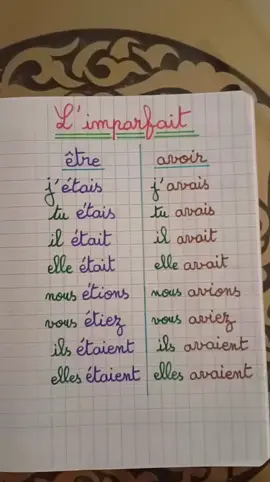 L'imparfait
être avoir
j'étais j'avais
tu étais tu avais
il était il avait
elle était elle avait
nous étions nous avions
vous étiez vous aviez
ils étaient ils avaient
elles étaient elles avaient